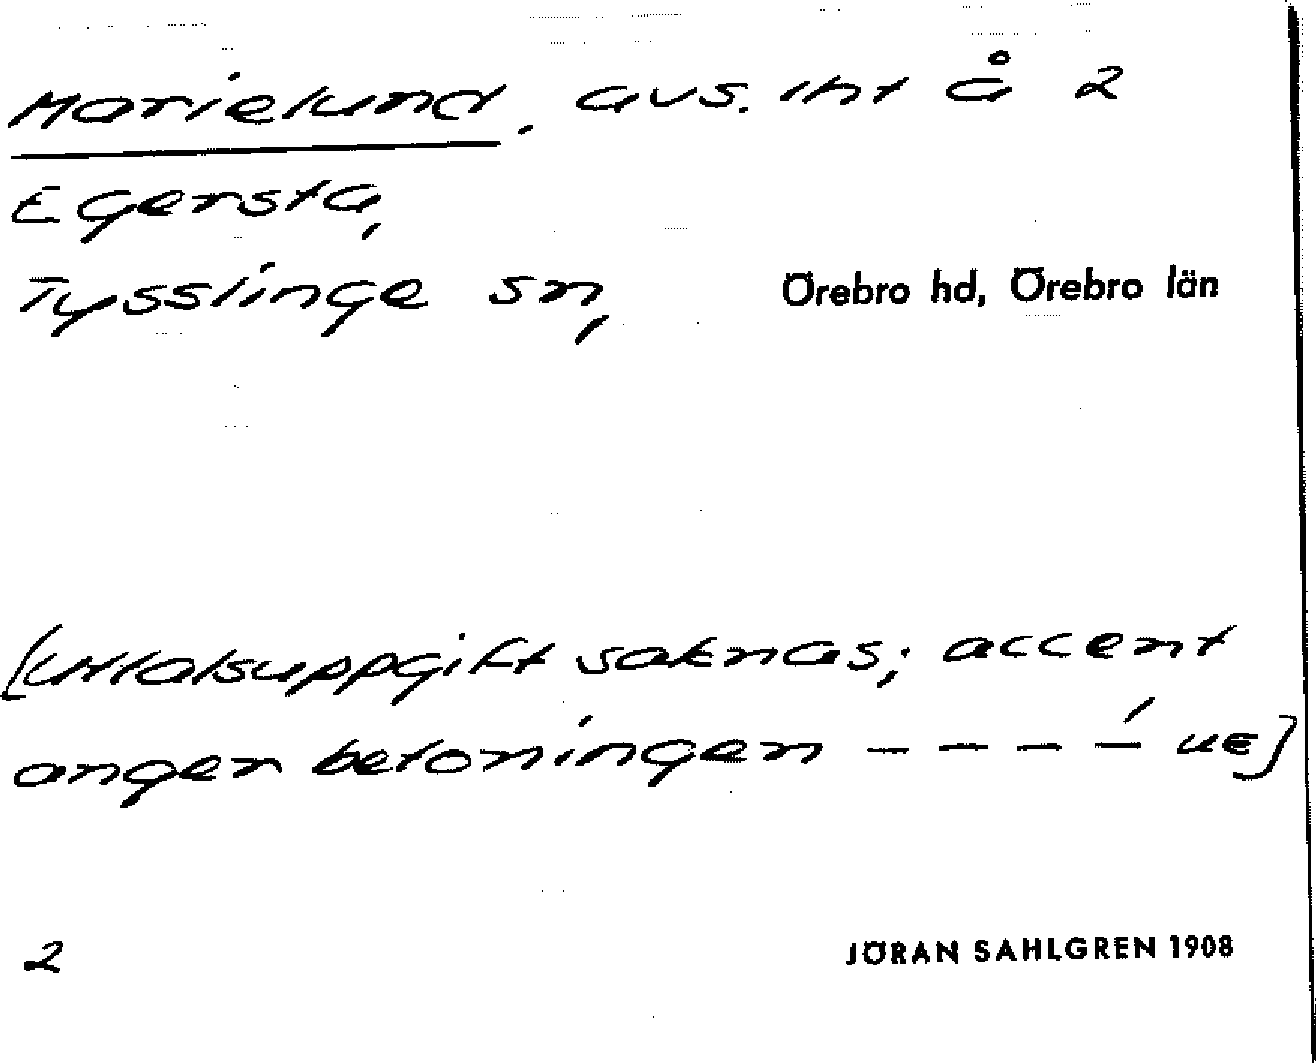 Marielund, avs. lht å 2
Egersta,
Tysslinge sn, Örebro hd, Örebro län
[Uttalsuppgift saknas; accent
angen betoningen – – – –́ UE]
2 JÖRAN SAHLGREN 1908